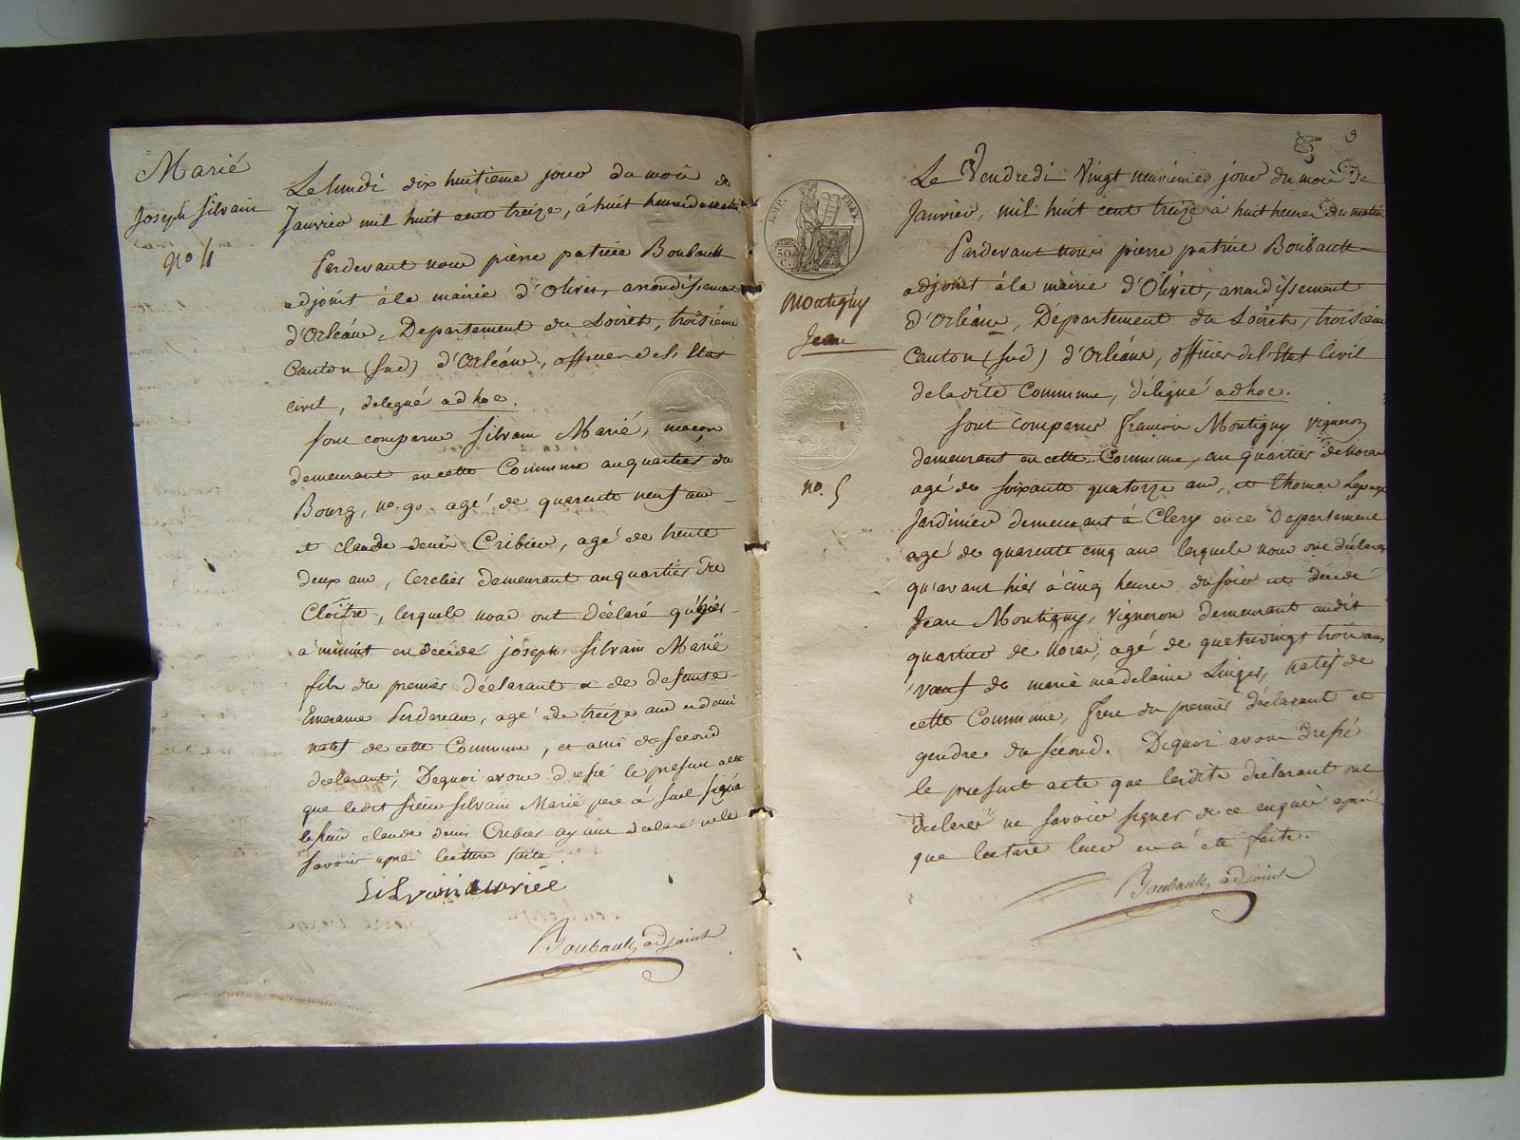 Marié
Joseph Silvain
no 4
Le lundi dix huitieme jour du mois de
Janvier mil huit cent treize, à huit heures du matin
Pardevant nous pierre patrice Boubault
adjoint à la mairie d'Olivet, arrondissement
d'Orléans, Departement du Loiret, troisième
Canton (sud) d'Orléans, officier de l'Etat
civil, délegué ad hoc.
sont comparus Silvain Marié, maçon
demeurant en cette Commune au quartier du
Bourg, no. 90 agé de quarente neuf ans
et claude denis Cribier, agé de trente
deux ans, Cerclier demeurant au quartier du
Cloître, lesquels nous ont déclaré qu'hier
a minuit en décédé joseph Silvain Marié
fils du premier déclarant et de defunte
agé de treize ans et demi
natif de cette Commune, et ami du second
déclarant; Dequoi avons dressé le présent acte
que ledit sieur Silvain Marié pere à seul signé
le sieur claude denis Cribier ayant déclaré ne le
savoir après lecture faite.
Silvain marié
Boubault, adjoint
9
EMP. FRAN.
50
C.
Montigny
Jean
no. 5
Le Vendredi Vingt neuvieme jour du mois de
Janvier, mil huit cent treize à huit heures du matin
Pardevant nous pierre patrice Boubault
adjoint à la mairie d'Olivet, arrondissement
d'Orléans, Département du Loiret, troisieme
Canton (sud) d'Orléans, officier de l'Etat Civil
de la dite Commune, délegué ad hoc.
sont comparus françois Montigny vigneron
demeurant en cette Commune, au quartier de
agé de soixante quatorze ans, et Thomas Lepage
Jardinier demeurant à Clery en ce Departement
agé de quarente cinq ans lesquels nous ont déclaré
qu'avant hier à cinq heures du soir est décédé
Jean Montigny, Vigneron demeurant audit
quartier de agé de quatrevingt trois ans
veuf de marie madelaine Linget, natif de
cette Commune, frere du premier déclarant et
gendre du second. Dequoi avons dressé
le present acte que lesdits déclarant ont
déclaré ne savoir signer de ce enquis après
que lecture leur en à été faite.
Boubault, adjoint